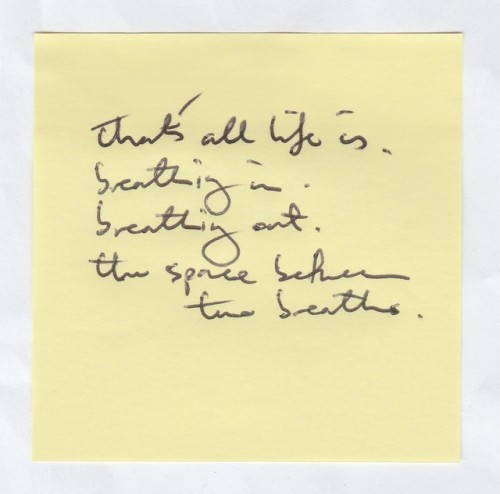 that's all life is.
breathing in.
breathing out.
the space between
two breaths.